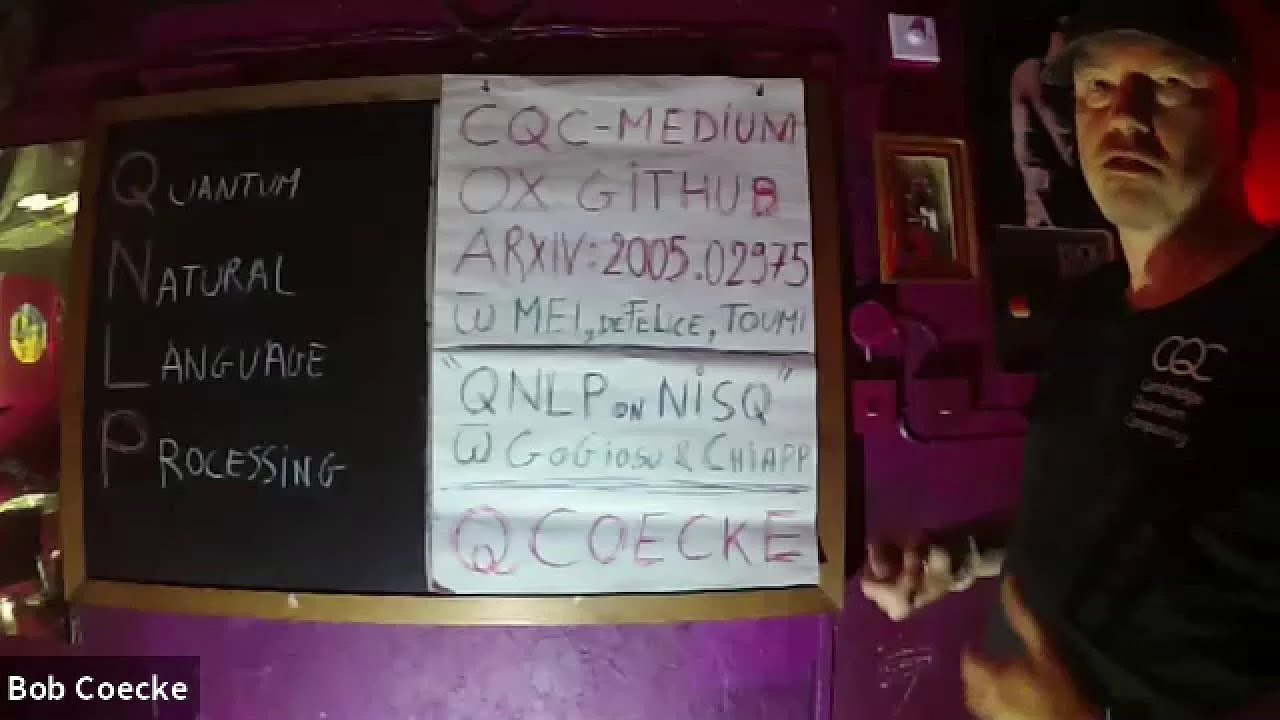 QUANTUM
NATURAL
LANGUAGE
PROCESSING
CQC-MEDIUM
OX GITHUB
ARXIV:2005.02975
W̅ MEI, DEFELICE, TOUMI
"QNLP ON NISQ"
W̅ GOGIOSU & CHIAPP
QCOECKE
CQC
Cambridge
Quantum
Computing
Bob Coecke